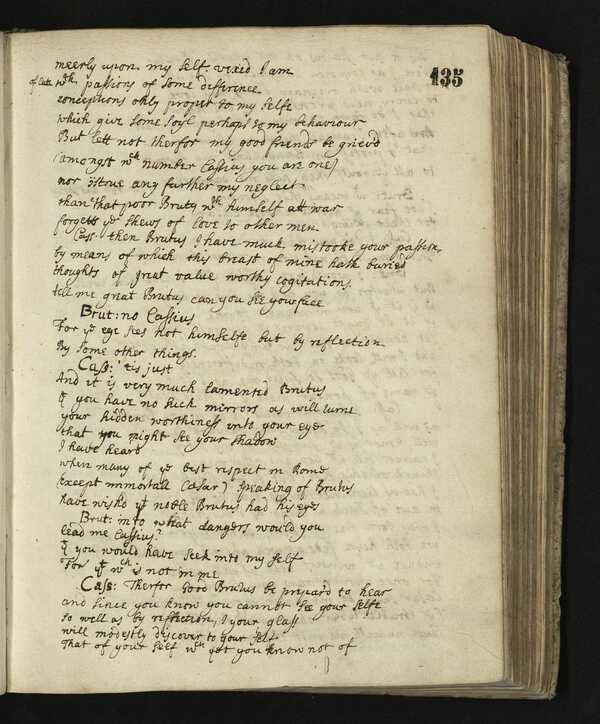 135
meerly upon my self, vexed I am
of late wth passions of some difference
conceptions only proper to my selfe
which give some soyl perhaps to my behaviour
But lett not therfor my good friends be griev'd
(amongst wch number Cassius you are one)
nor strue any further my neglect
than that poor Brutus wth himself att war
forgetts ye shews of love to other men.
Cass: then Brutus I have much mistooke your passion,
by means of which this breast of mine hath buried
thoughts of great value worthy cogitations.
tell me great Brutus can you see your face
Brut: no Cassius
For ye eye sees not himselfe but by reflection
By some other things.
Cass: 'tis just
And it is very much lamented Brutus
yt you have no such mirrors as will turne
your hidden worthiness into your eye
that you might see your shadow
I have heard
when many of ye best respect in Rome
(except immortall Cæsar) speaking of Brutus
have wish'd yt noble Brutus had his eyes
Brut: into what dangers would you
lead me Cassius?
yt you would have seek into my self
For yt wch is not in me
Cass: Therfor Good Brutus be prepar'd to hear
and since you know you cannot see your selfe
so well as by reflection, I your glass
will modestly discover to your self
That of your self wch yet you know not of